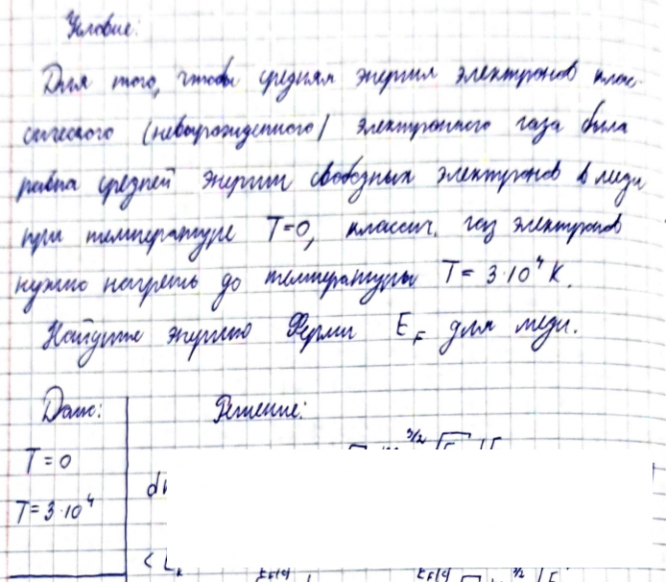 Условие:
Для того, чтобы средняя энергия электронов клас-
сического (невырожденного) электронного газа была
равна средней энергии свободных электронов в меди
при температуре T=0, классич. газ электронов
нужно нагреть до температуры T = 3·10⁴ K.
Найдите энергию Ферми E_F для меди.
Дано:
Решение:
T=0
T=3·10⁴